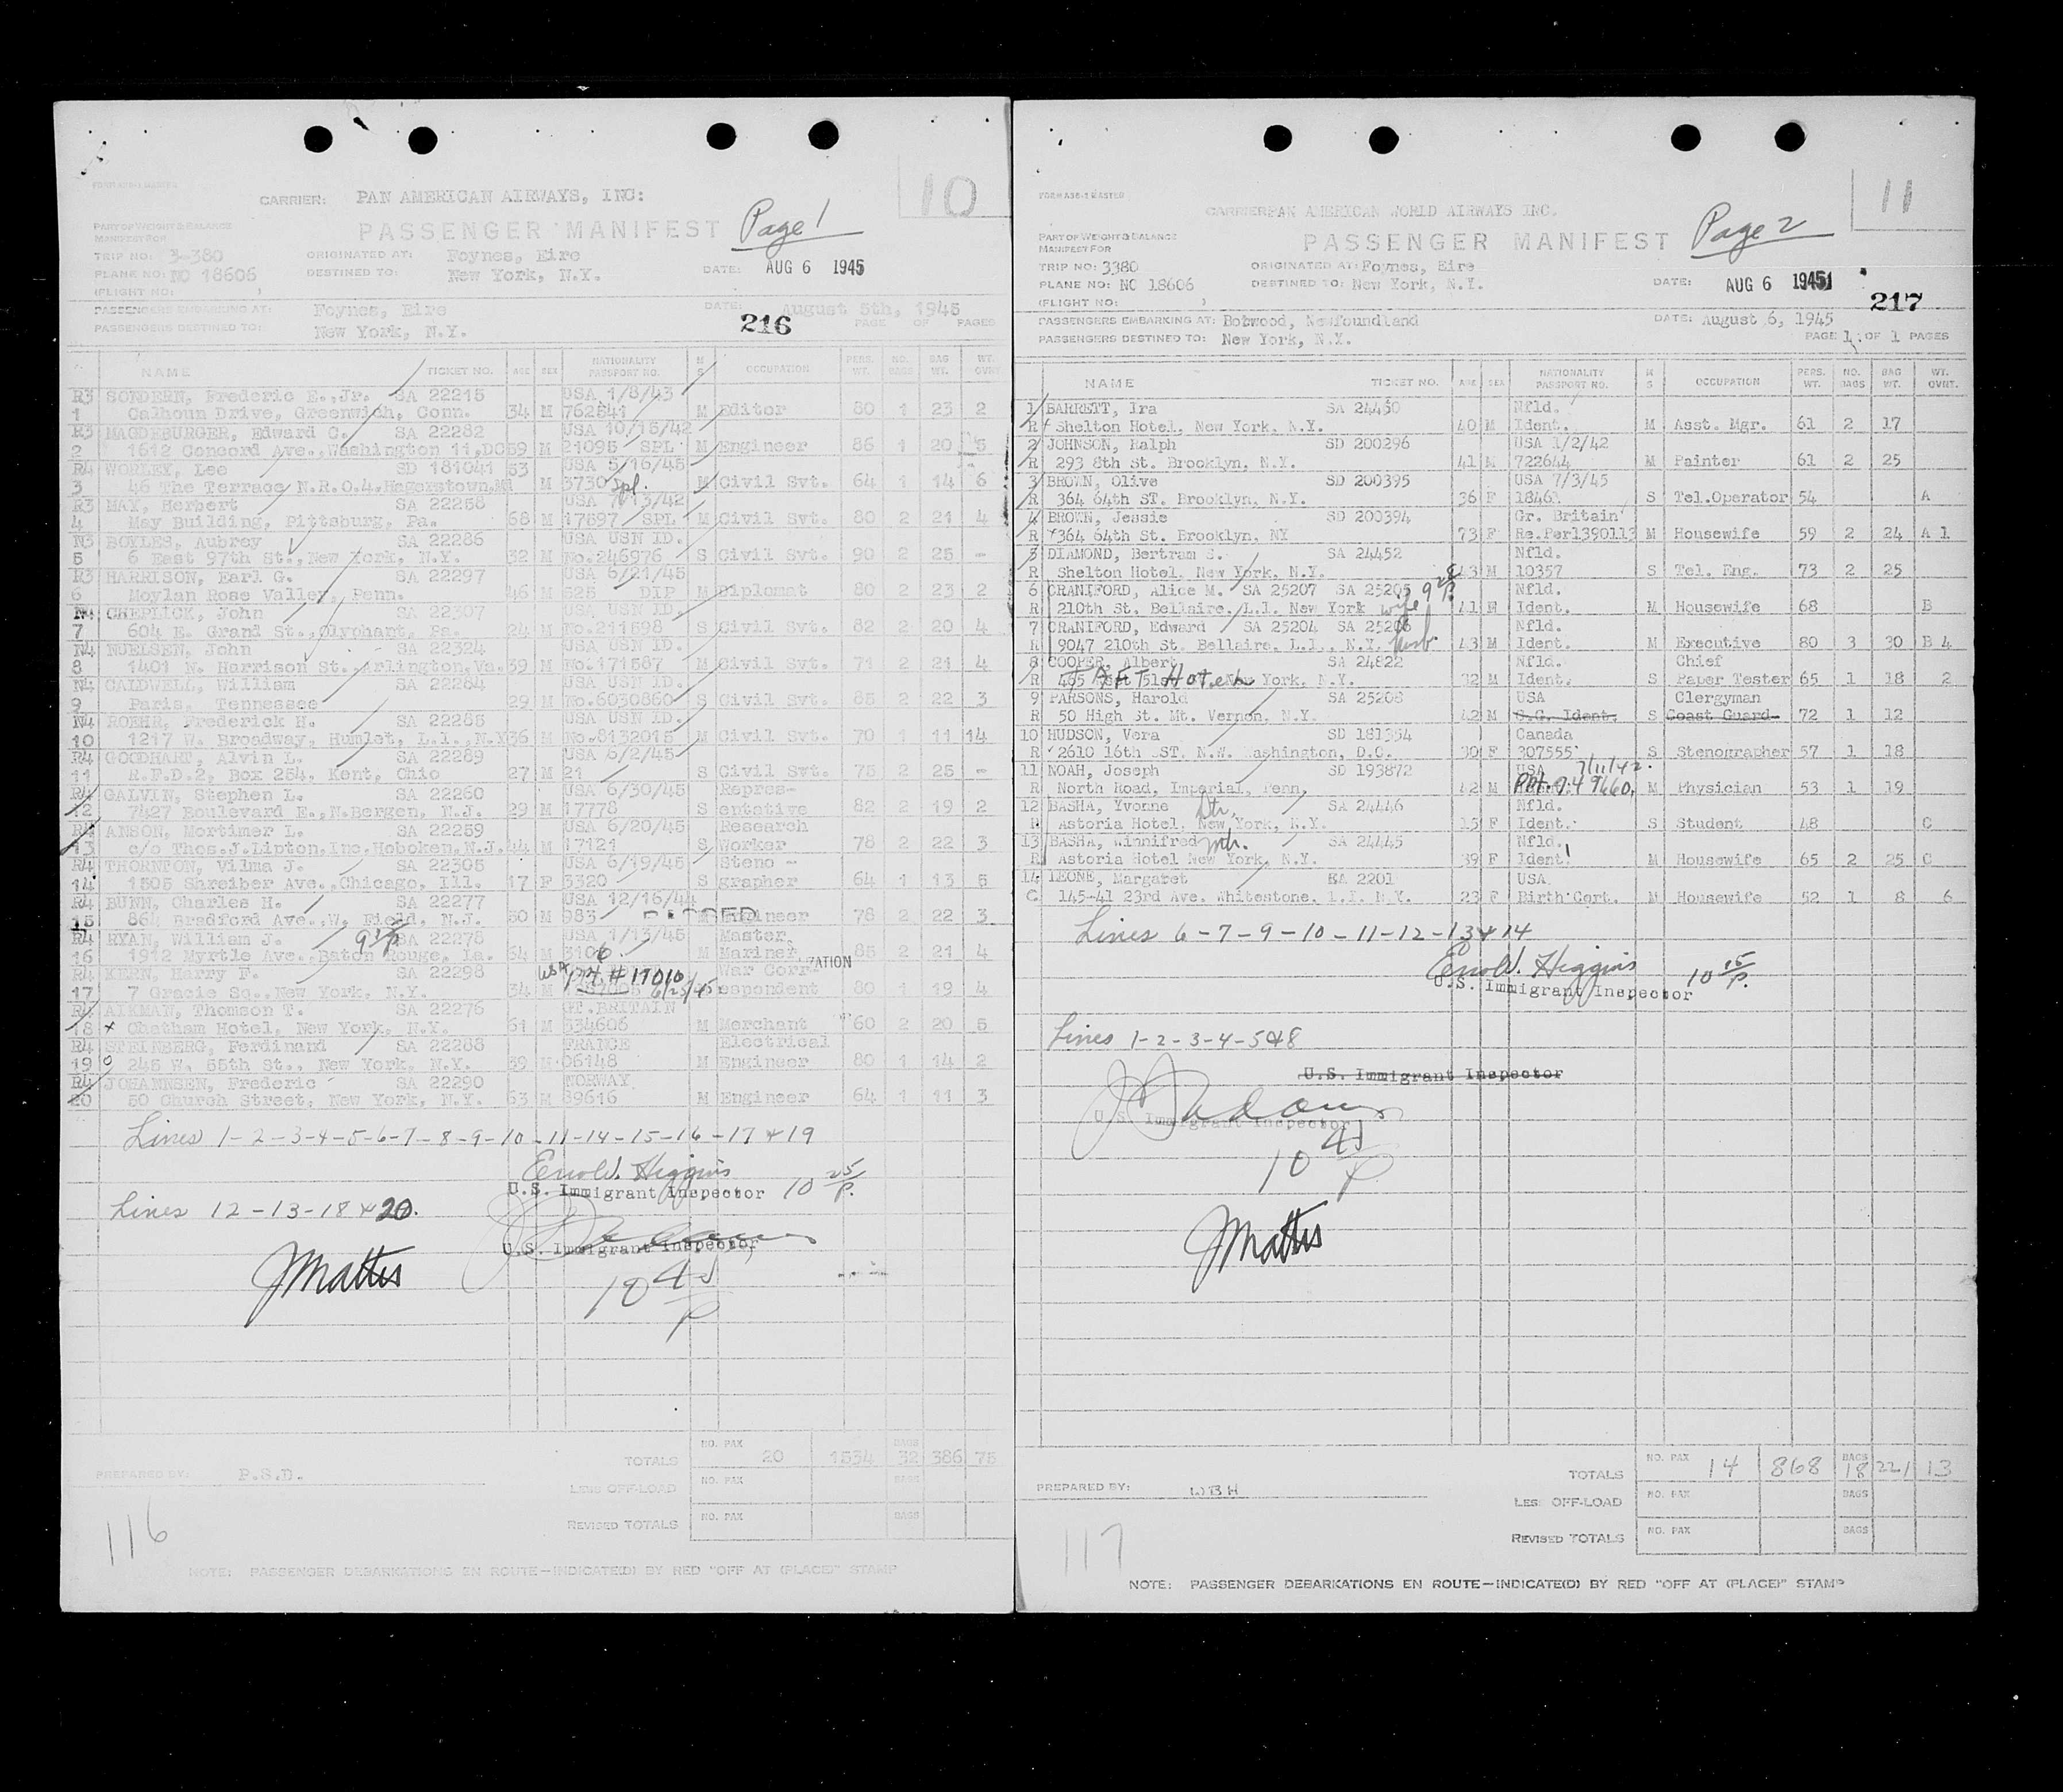 10
FORM ASE-1 MASTER
CARRIER: PAN AMERICAN AIRWAYS, INC:
PART OF WEIGHT & BALANCE
MANIFEST FOR
PASSENGER MANIFEST Page 1
TRIP NO: 3-380 ORIGINATED AT: Foynes, Eire
PLANE NO: NC 18606 DESTINED TO: New York, N.Y. DATE: AUG 6 1945
(FLIGHT NO: )
PASSENGERS EMBARKING AT: Foynes, Eire DATE: August 5th, 1945
216 PAGE OF PAGES
PASSENGERS DESTINED TO: New York, N.Y.
NAME TICKET NO. AGE SEX NATIONALITY PASSPORT NO. M S OCCUPATION PERS. WT. NO. BAGS BAG WT. WT. OVRT.
R3 SONDERN, Frederic E.,Jr. SA 22215 USA 1/8/43
1 Calhoun Drive, Greenwich, Conn. 34 M 762541 M Editor 80 1 23 2
R3 MAGDEBURGER, Edward C. SA 22282 USA 10/15/42
2 1612 Concord Ave.,Washington 11,DC 59 M 21095 SPL M Engineer 86 1 20 5
R4 WORLEY, Lee SD 181041 53 USA 5/16/45
3 46 The Terrace N.R.O.4.Hagerstown,Md M 3730 Spl. M Civil Svt. 64 1 14 6
R3 MAY, Herbert SA 22258 USA 7/13/42
4 May Building, Pittsburg, Pa. 68 M 17697 SPL M Civil Svt. 80 2 21 4
N3 BOYLES, Aubrey SA 22286 USA USN ID.
5 6 East 97th St.,New York, N.Y. 32 M No.246976 S Civil Svt. 90 2 25 -
R3 HARRISON, Earl G. SA 22297 USA 6/21/45
6 Moylan Rose Valley, Penn. 46 M 525 DIP M Diplomat 80 2 23 2
N4 CHEPLICK, John SA 22307 USA USN ID.
7 604 E. Grand St.,Olyphant, Pa. M No.211598 S Civil Svt. 82 2 20 4
N4 NUELSEN, John SA 22324 USA USN ID.
8 1401 N. Harrison St. Arlington,Va. 39 M No.171587 M Civil Svt. 71 2 21 4
N4 CALDWELL, William SA 22284 USA USN ID.
9 Paris, Tennessee 29 M No.6030860 S Civil Svt. 85 2 22 3
N4 ROEHR, Frederick H. SA 22285 USA USN ID.
10 1217 W. Broadway, Humlet, L.I.,N.Y 36 M No.8132015 M Civil Svt. 70 1 11 14
R4 GOODHART, Alvin L. SA 22289 USA 6/2/45
11 R.F.D.2, Box 254, Kent, Ohio 27 M 21 S Civil Svt. 75 2 25 -
R4 GALVIN, Stephen L. SA 22260 USA 6/30/45 Repres-
12 7427 Boulevard E.,N.Bergen, N.J. 29 M 17778 S entative 82 2 19 2
R4 ANSON, Mortimer L. SA 22259 USA 6/20/45 Research
13 c/o Thos.J.Lipton,Inc.Hoboken,N.J. 44 M 17121 S Worker 78 2 22 3
R4 THORNTON, Vilma J. SA 22305 USA 6/19/45 Steno -
14 1505 Shreiber Ave.,Chicago, Ill. 17 F 5320 S grapher 64 1 13 5
R4 BUNN, Charles H. SA 22277 USA 12/16/44
15 864 Bradford Ave.,W. Field, N.J. 50 M 983 M Engineer 78 2 22 3
R4 RYAN, William J. SA 22278 USA 1/13/45 Master
16 1912 Myrtle Ave.,Baton Rouge, La. 64 M 3106 M Mariner 85 2 21 4
R4 KERN, Harry F. SA 22298 USA Ppt # 17010 War Corr-
17 7 Gracie Sq.,New York, N.Y. 34 M 6/25/45 espondent 80 1 19 4
R4 AIKMAN, Thomson T. SA 22276 GT.BRITAIN
18 x Chatham Hotel, New York, N.Y. 61 M 534606 M Merchant 60 2 20 5
R4 STEINBERG, Ferdinand SA 22288 FRANCE Electrical
19 245 W. 55th St., New York, N.Y. 39 M 06148 M Engineer 80 1 14 2
R4 JOHANNSEN, Frederic SA 22290 NORWAY
20 50 Church Street, New York, N.Y. 63 M 39616 M Engineer 64 1 11 3
Lines 1-2-3-4-5-6-7-8-9-10-11-14-15-16-17 & 19
U.S. Immigrant Inspector 10 25/P.
Lines 12-13-18 & 20.
U.S. Immigrant Inspector
J Mattes
10 45/P
TOTALS NO. PAX 20 1534 BAGS 32 386 75
PREPARED BY: P.S.D.
LESS OFF-LOAD NO. PAX BAGS
REVISED TOTALS NO. PAX BAGS
116
NOTE: PASSENGER DEBARKATIONS EN ROUTE—INDICATE(D) BY RED "OFF AT (PLACE)" STAMP
11
FORM ASE-1 MASTER
CARRIER PAN AMERICAN WORLD AIRWAYS INC.
PART OF WEIGHT & BALANCE
MANIFEST FOR
PASSENGER MANIFEST Page 2
TRIP NO: 3380 ORIGINATED AT: Foynes, Eire
PLANE NO: NC 18606 DESTINED TO: New York, N.Y. DATE: AUG 6 1945
(FLIGHT NO: ) 217
PASSENGERS EMBARKING AT: Botwood, Newfoundland DATE: August 6, 1945
PASSENGERS DESTINED TO: New York, N.Y. PAGE 1 OF 1 PAGES
NAME TICKET NO. AGE SEX NATIONALITY PASSPORT NO. M S OCCUPATION PERS. WT. NO. BAGS BAG WT. WT. OVRT.
1 BARRETT, Ira SA 24450 Nfld.
R Shelton Hotel, New York, N.Y. 40 M Ident. M Asst. Mgr. 61 2 17
2 JOHNSON, Ralph SD 200296 USA 1/2/42
R 293 8th St. Brooklyn, N.Y. 41 M 722644 M Painter 61 2 25
3 BROWN, Olive SD 200395 USA 7/3/45
R 364 64th ST. Brooklyn, N.Y. 36 F 18461 S Tel.Operator 54 A
4 BROWN, Jessie SD 200394 Gr. Britain
R 364 64th St. Brooklyn, NY 73 F Re.Per1390113 M Housewife 59 2 24 A 1
5 DIAMOND, Bertram S. SA 24452 Nfld.
R Shelton Hotel, New York, N.Y. 43 M 10357 S Tel. Eng. 73 2 25
6 CRANIFORD, Alice M. SA 25207 SA 25205 Nfld.
R 210th St. Bellaire, L.I. New York wife 41 F Ident. M Housewife 68 B
7 CRANIFORD, Edward SA 25204 SA 25206 Nfld.
R 9047 210th St. Bellaire, L.I., N.Y. Husb. 43 M Ident. M Executive 80 3 30 B 4
8 COOPER, Albert SA 24822 Nfld. Chief
R TAFT Hotel New York, N.Y. 32 M Ident. S Paper Tester 65 1 18 2
9 PARSONS, Harold SA 25208 USA Clergyman
R 50 High St. Mt. Vernon, N.Y. 42 M C.G. Ident. S Coast Guard 72 1 12
10 HUDSON, Vera SD 181354 Canada
R 2610 16th ST. N.W. Washington, D.C. 30 F 307555 S Stenographer 57 1 18
11 NOAH, Joseph SD 193872 USA 7/11/42.
R North Road, Imperial, Penn. 42 M M Physician 53 1 19
12 BASHA, Yvonne Dtr. SA 24446 Nfld.
R Astoria Hotel, New York, N.Y. 15 F Ident. S Student 48 C
13 BASHA, Winnifred mth. SA 24445 Nfld.
R Astoria Hotel New York, N.Y. 39 F Ident. M Housewife 65 2 25 C
14 LEONE, Margaret EA 2201 USA
C 145-41 23rd Ave. Whitestone, L.I. N.Y. 23 F Birth Cert. M Housewife 52 1 8 6
Lines 6-7-9-10-11-12-13 & 14
U.S. Immigrant Inspector 10 15/P.
Lines 1-2-3-4-5 & 8
U.S. Immigrant Inspector
U.S. Immigrant Inspector
10 45/P
J Mattes
TOTALS NO. PAX 14 868 BAGS 18 221 13
PREPARED BY: WBH
LESS OFF-LOAD NO. PAX BAGS
REVISED TOTALS NO. PAX BAGS
117
NOTE: PASSENGER DEBARKATIONS EN ROUTE—INDICATE(D) BY RED "OFF AT (PLACE)" STAMP